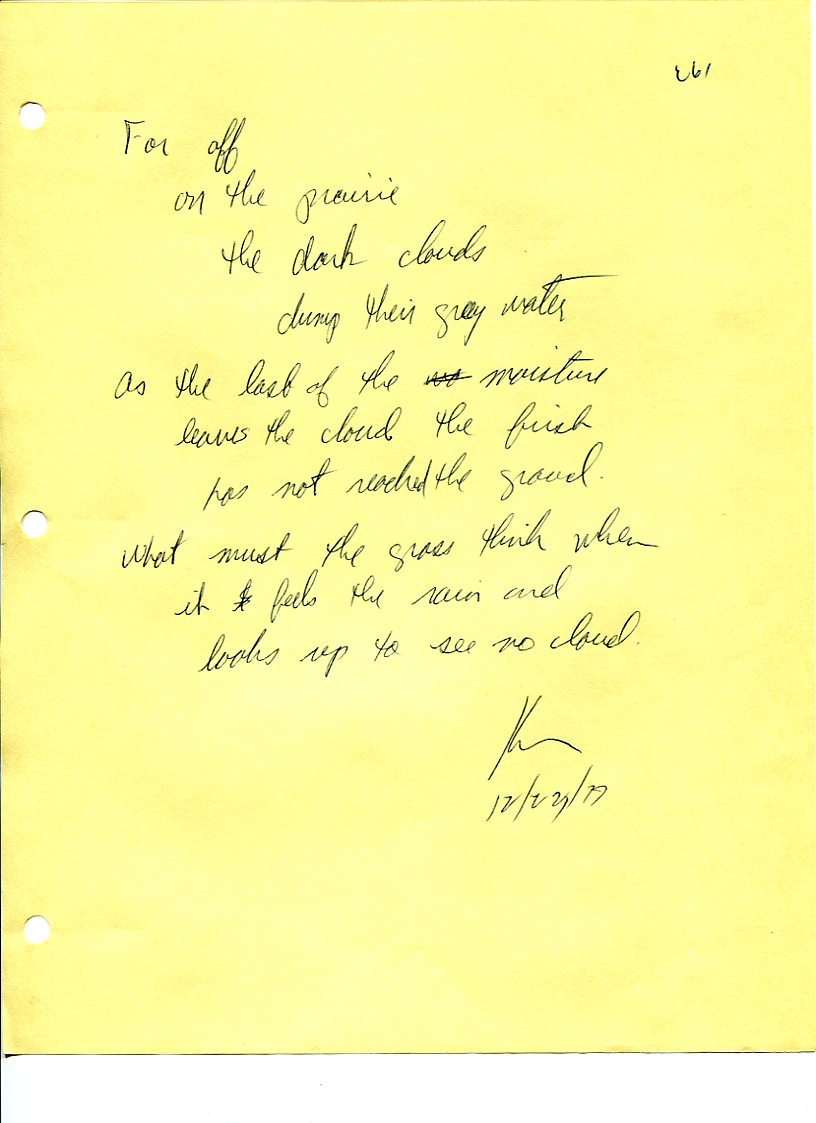 261
Far off
on the prairie
the dark clouds
dump their gray water
As the last of the moisture
leaves the cloud the first
has not reached the ground.
What must the grass think when
it feels the rain and
looks up to see no cloud.